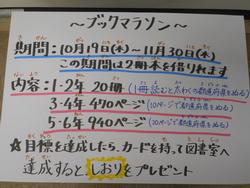 ～ブックマラソン～
期間：10月19日(木)～11月30日(木)
この期間は2冊本を借りれます
内容：1・2年 20冊 (1冊読むとたわくの都道府県をぬる)
3・4年 470ページ (10ページで都道府県をぬる)
5・6年 940ページ (20ページで都道府県をぬる)
☆目標を達成したら、カードを持って図書室へ
達成するとしおりをプレゼント